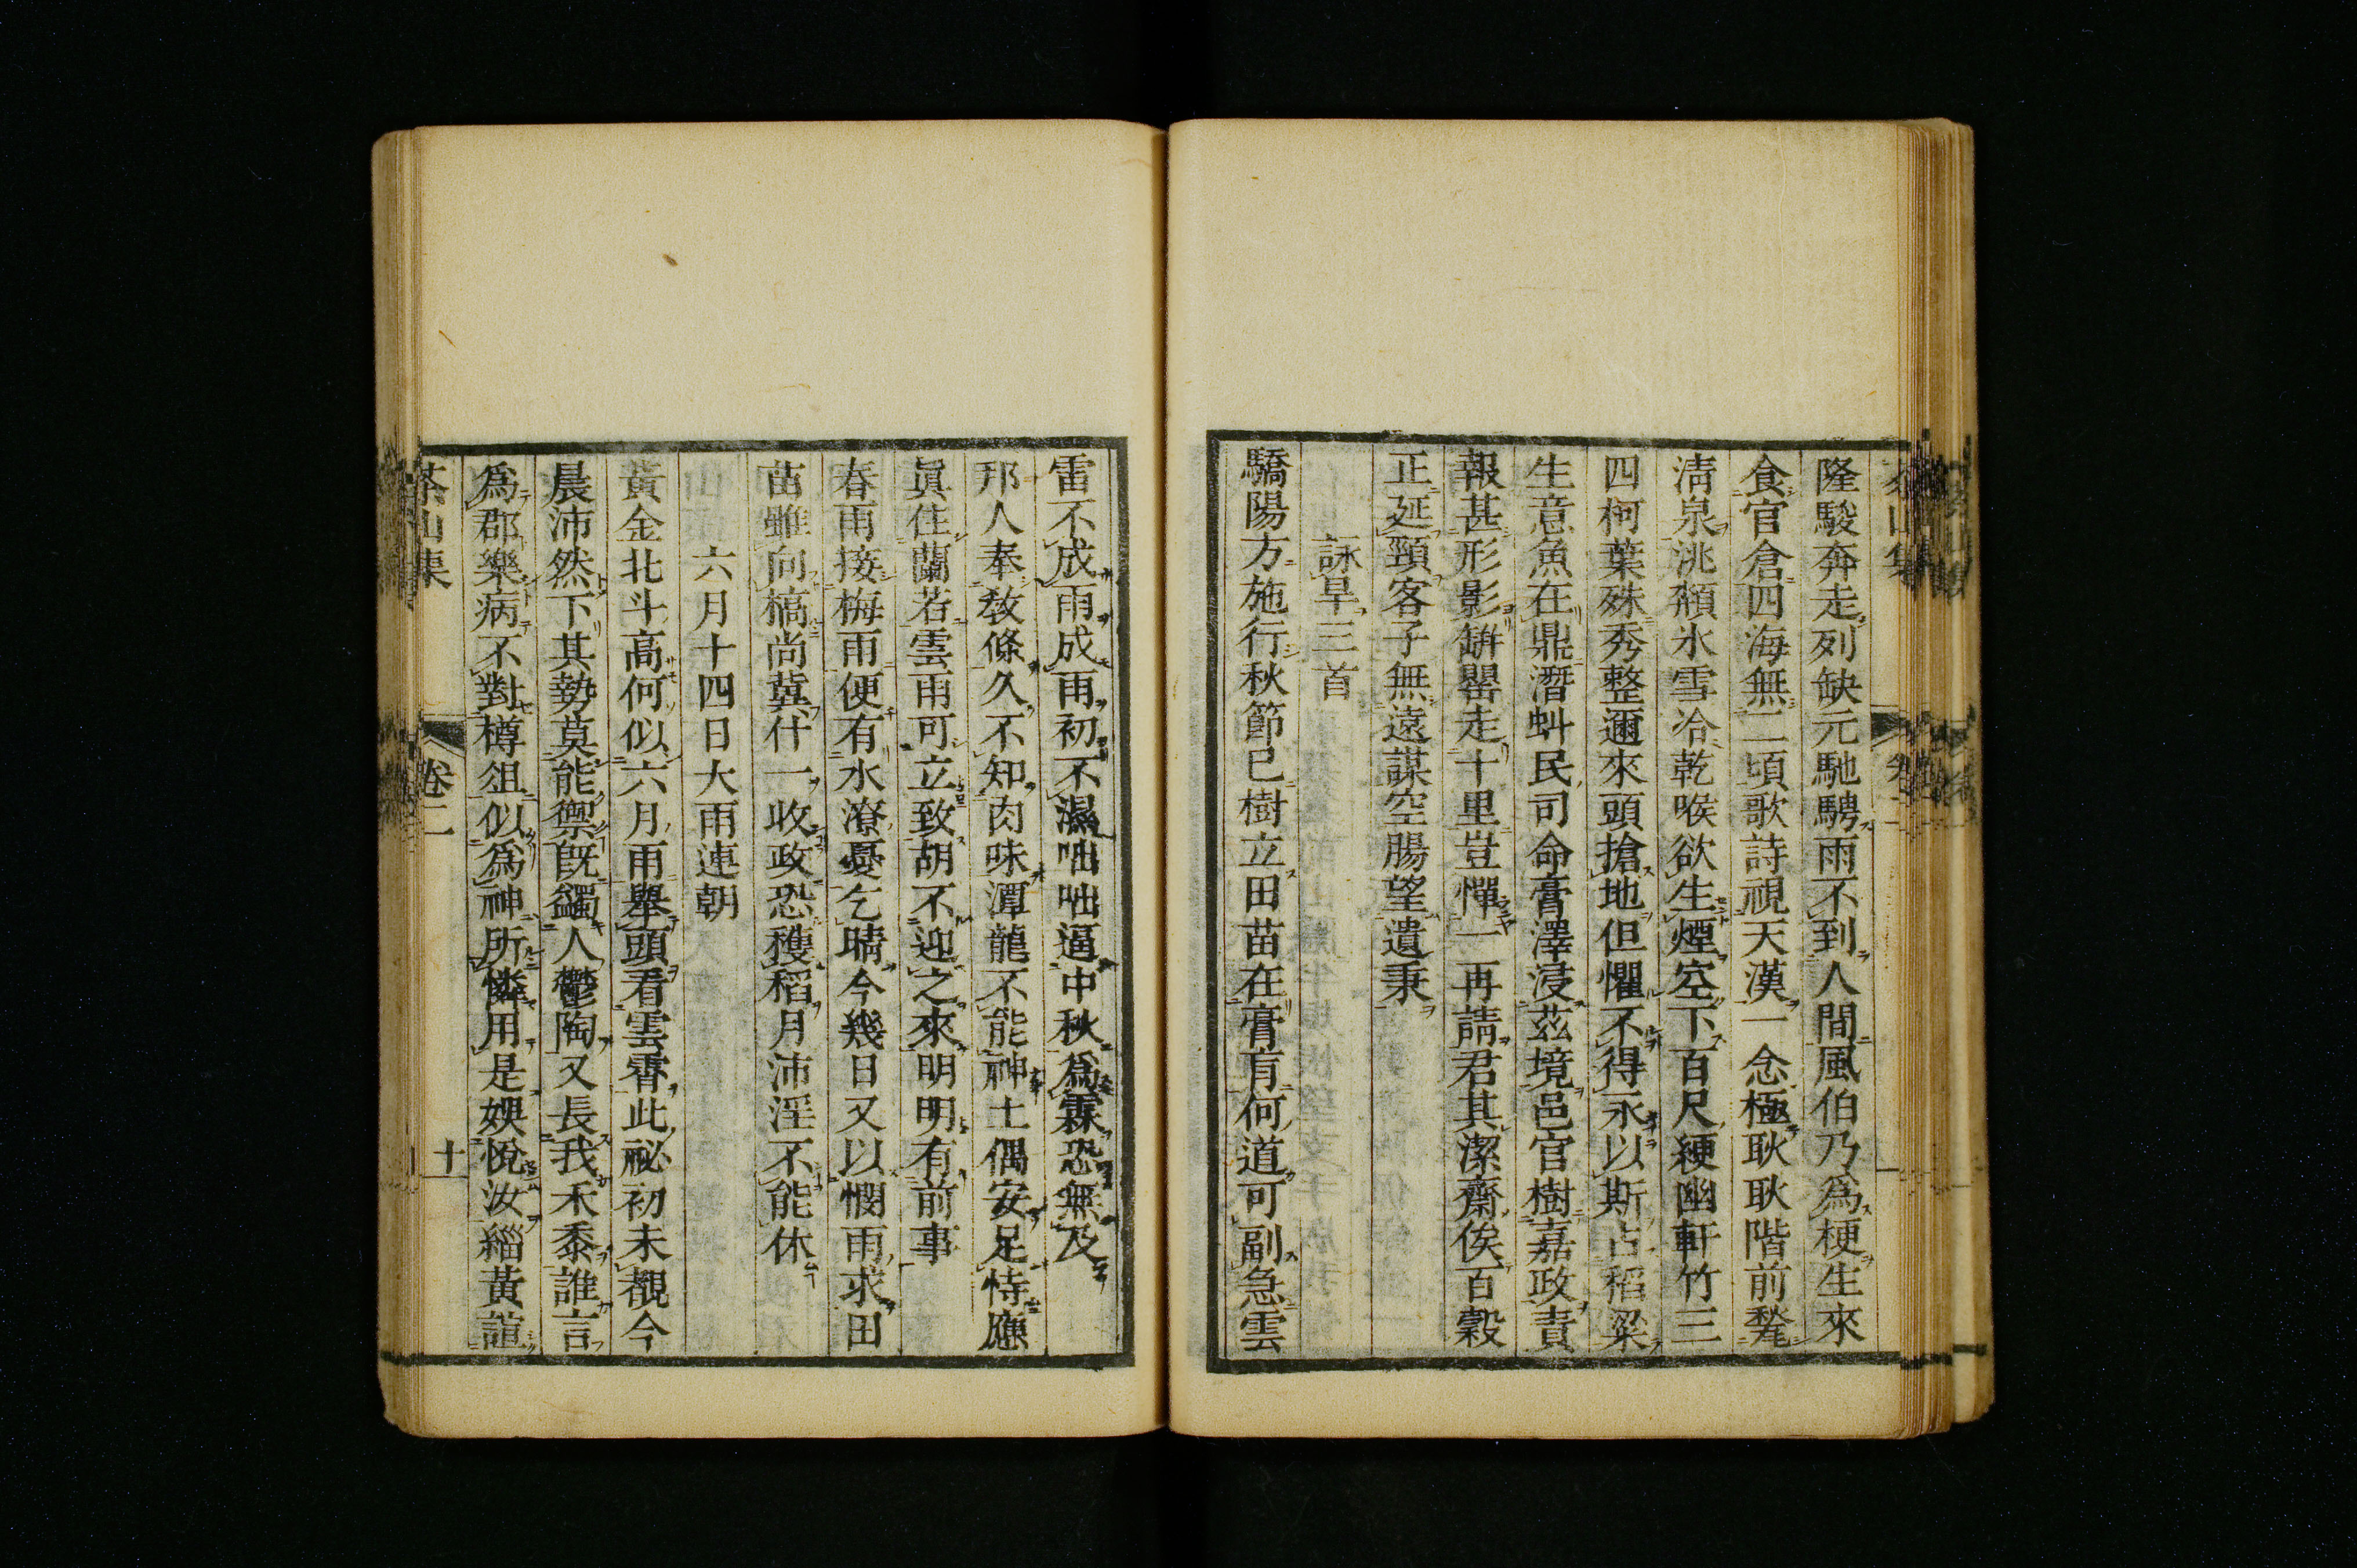 隆駿奔走列缺元馳騁雨不到人間風伯乃爲梗生來
食官倉四海無二頃歌詩視天漢一念極耿耿階前甃
淸泉洮頮氷雪冾乾喉欲生煙空下百尺綆幽軒竹三
四柯葉殊秀整邇來頭搶地但懼不得永以斯占稻粱
生意魚在鼎潛虯民司命膏澤浸茲境邑官樹嘉政責
報甚形影缾罌走十里豈憚一再請君其潔齋俟百穀
正延頸客子無遠謀空腸望遺秉
詠旱三首
驕陽方施行秋節已樹立田苗在膏肓何道可副急雲
雷不成雨成雨初不濕咄咄逼中秋爲霖恐無及
邦人奉敎條久不知肉味潭龍不能神土偶安足恃應
眞住蘭若雲雨可立致胡不迎之來明明有前事
春雨接梅雨便有水潦憂乞晴今幾日又以憫雨求田
苗雖向槁尚冀什一收政恐穫稻月沛淫不能休
六月十四日大雨連朝
黃金北斗高何似六月雨舉頭看雲霄此祕初未覩今
晨沛然下其勢莫能禦旣蠲人鬱陶又長我禾黍誰言
爲郡樂病不對樽俎似爲神所憐用是娛悅汝緇黃諠
茶山集
卷二
十